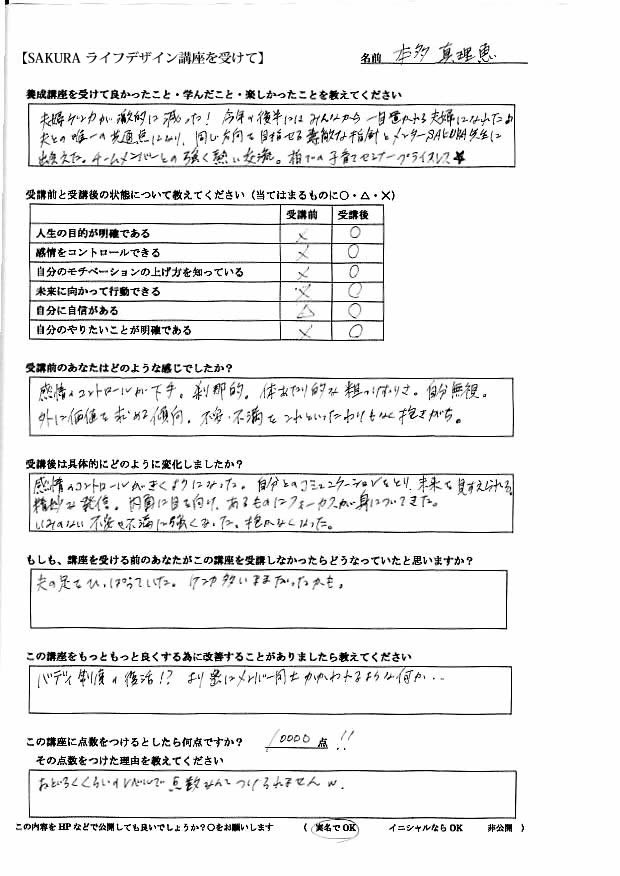 【SAKURA ライフデザイン講座を受けて】 名前 本多 真理恵
養成講座を受けて良かったこと・学んだこと・楽しかったことを教えてください
夫婦ゲンカが激的に減った! 今年の後半にはみんなから一目置かれる夫婦になれたよ
夫との唯一の共通点になり、同じ方向を目指せる素敵な指針とメンターSAKURA先生に
出会えた。チームメンバーとの強く熱い交流。 子育てセミナープライスレス★
受講前と受講後の状態について教えてください(当てはまるものに○・△・×)
受講前 受講後
人生の目的が明確である × ○
感情をコントロールできる × ○
自分のモチベーションの上げ方を知っている × ○
未来に向かって行動できる × ○
自分に自信がある △ ○
自分のやりたいことが明確である × ○
受講前のあなたはどのような感じでしたか?
感情のコントロールが下手。刹那的。体あたり的な粗っぽさ。自分無視。
外に価値を求める傾向。不安・不満をこれといったわりもなく抱きがち。
受講後は具体的にどのように変化しましたか?
感情のコントロールができるようになった。自分とのコミュニケーションをとり、未来を見すえられる
精妙な発信。内面に目を向け、あるものにフォーカスが身についてきた。
いみのない不安や不満に強くなった。抱かなくなった。
もしも、講座を受ける前のあなたがこの講座を受講しなかったらどうなっていたと思いますか?
夫の足をひっぱっていた。ケンカ多いままだったかも。
この講座をもっともっと良くする為に改善することがありましたら教えてください
バディ制度の復活!? より密にメンバー同士かかわれるような何か…
この講座に点数をつけるとしたら何点ですか? 10000 点 !!
その点数をつけた理由を教えてください
おどろくくらいのレベルで点数なんてつけられませんw.
この内容をHPなどで公開しても良いでしょうか?○をお願いします ( 実名でOK イニシャルならOK 非公開 )